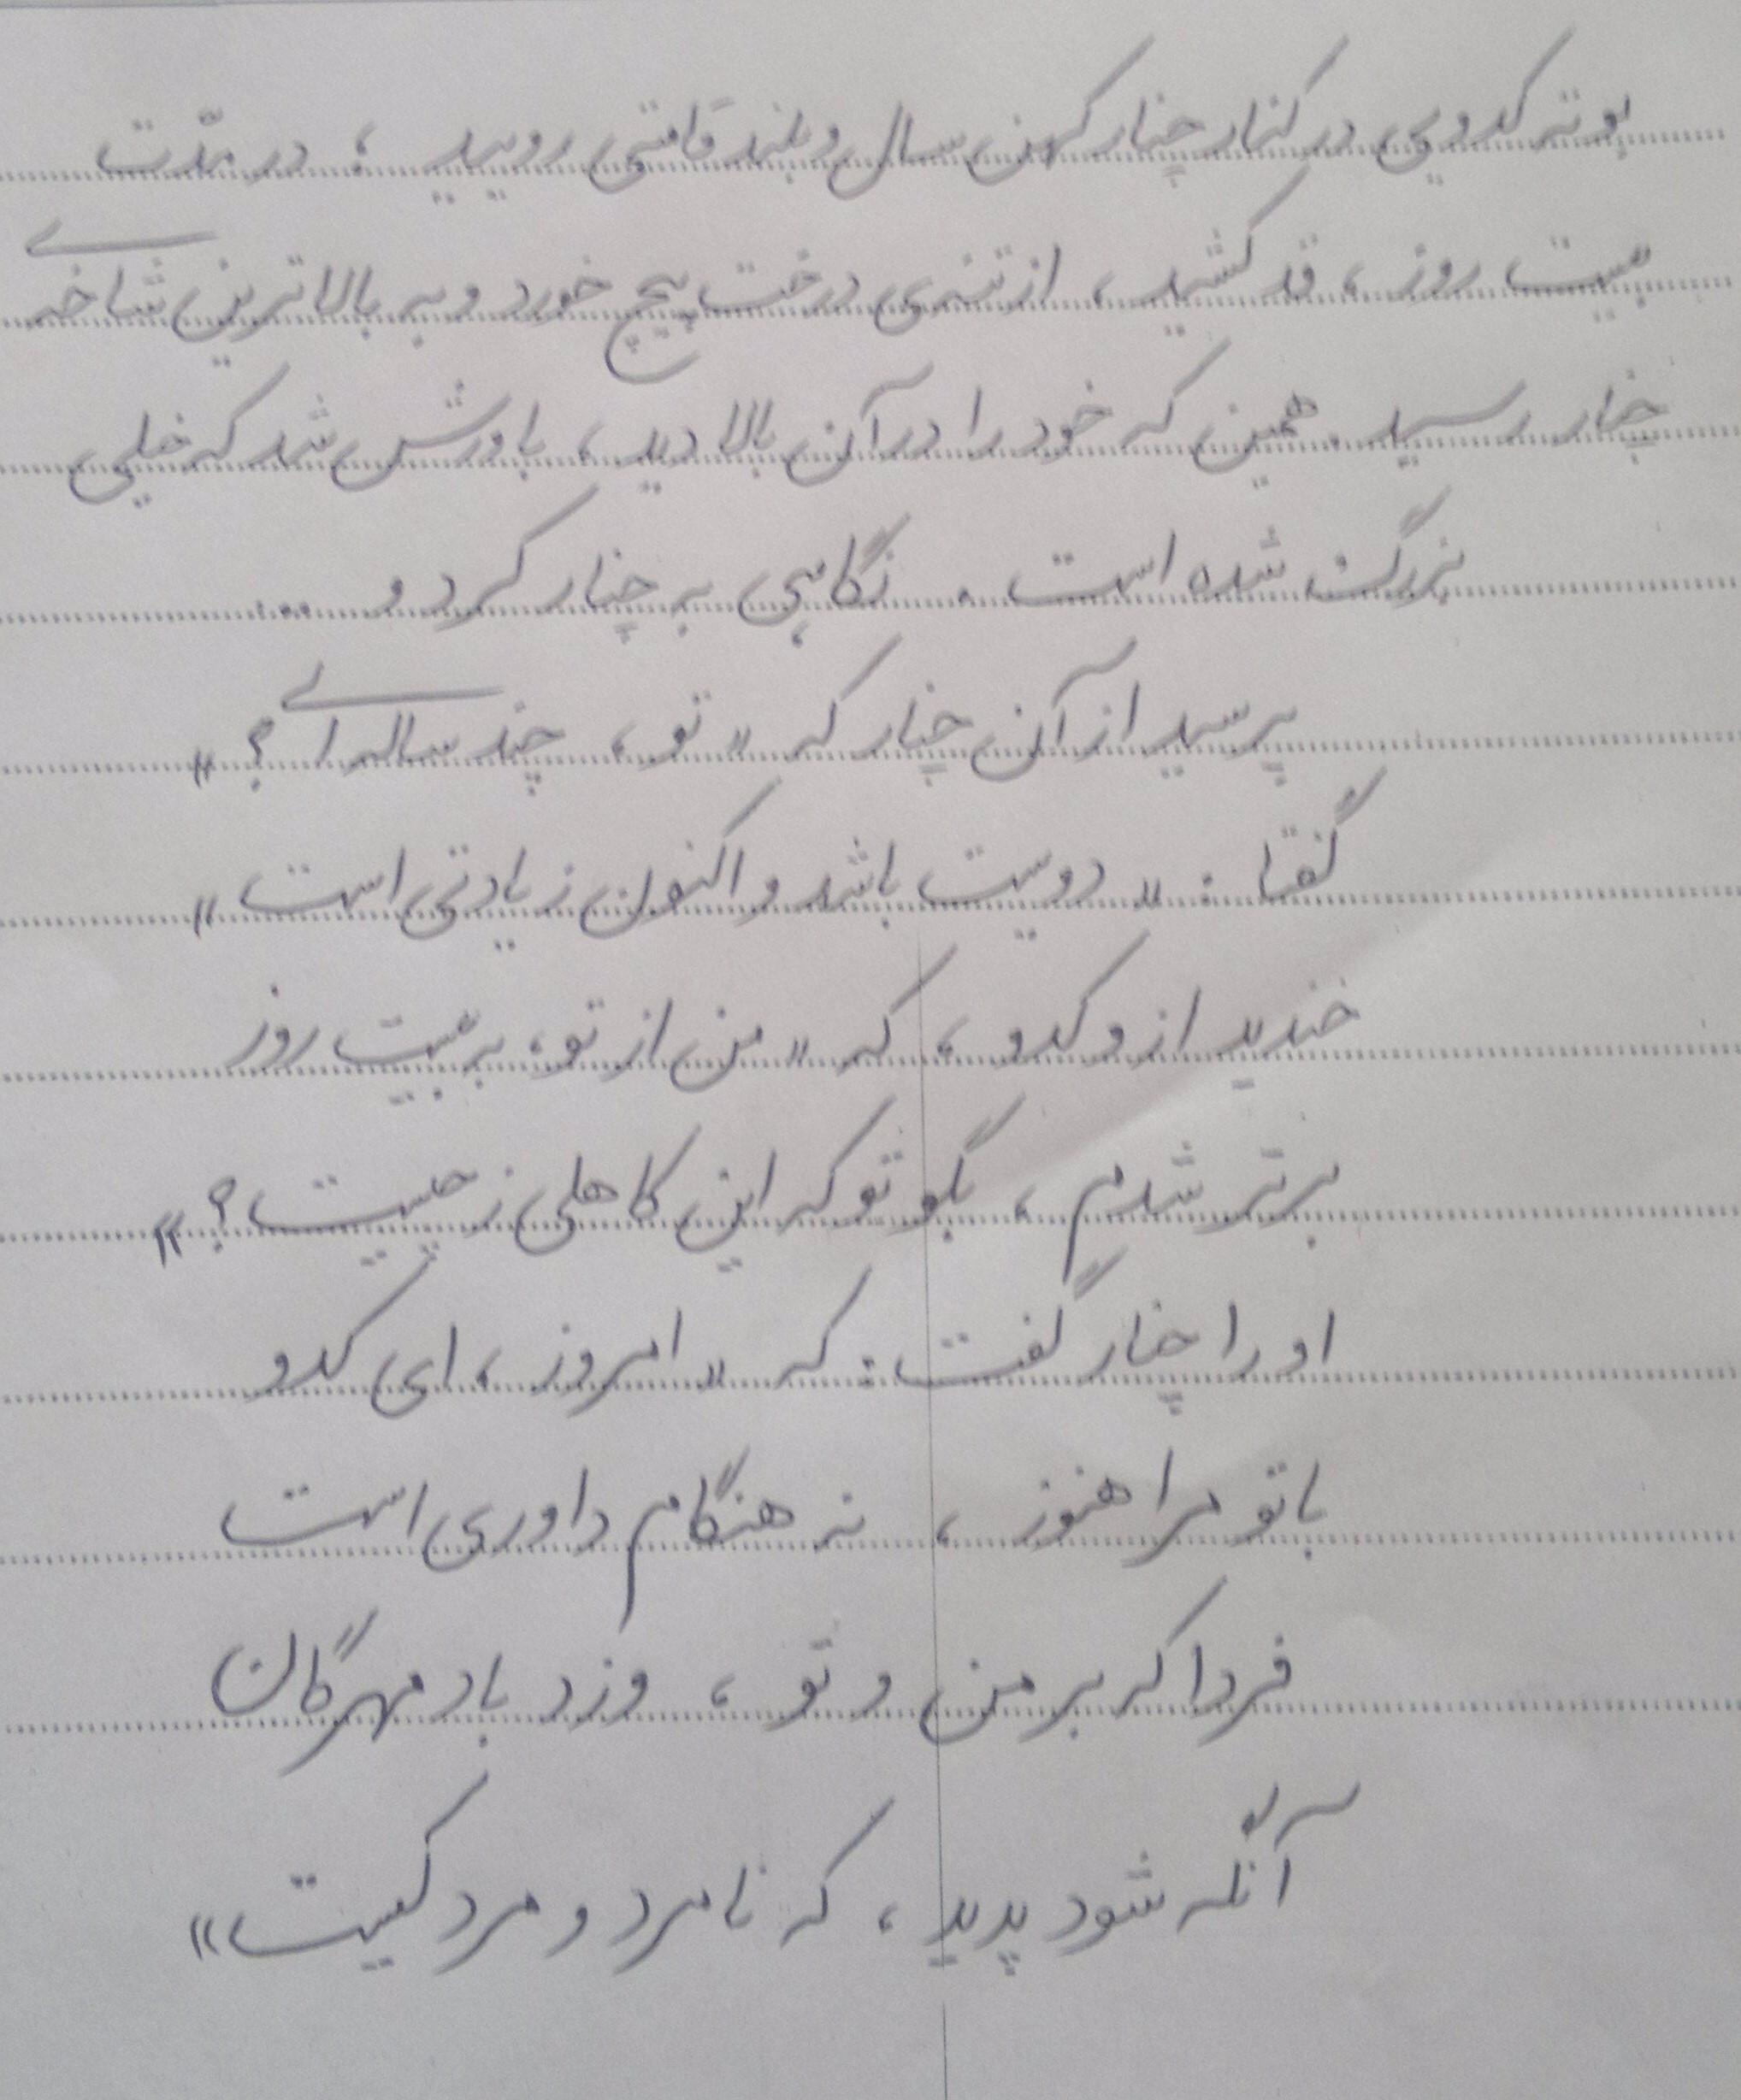 بوته کدویی در کنار چنار کهن سال و بلند قامتی رویید ، در مدّت
بیست روز ، قد کشید ، از تنه‌ی درخت پیچ خورد و به بالاترین شاخه‌ی
چنار رسید . همین که خود را در آن بالا دید ، باورش شد که خیلی
بزرگ شده است . نگاهی به چنار کرد و ...
پرسید از آن چنار که « تو ، چند ساله‌ای ؟ »
گفتا : « دویست باشد و اکنون زیادتی است »
خندید ازو کدو ، که « من از تو ، به بیست روز
برتر شدم ، بگو تو که این کاهلی ز چیست ؟ »
او را چنار گفت : که « امروز ، ای کدو
با تو مرا هنوز ، نه هنگام داوری است
فردا که بر من و تو ، وزد باد مهرگان
آنگه شود پدید ، که نامرد و مرد کیست »